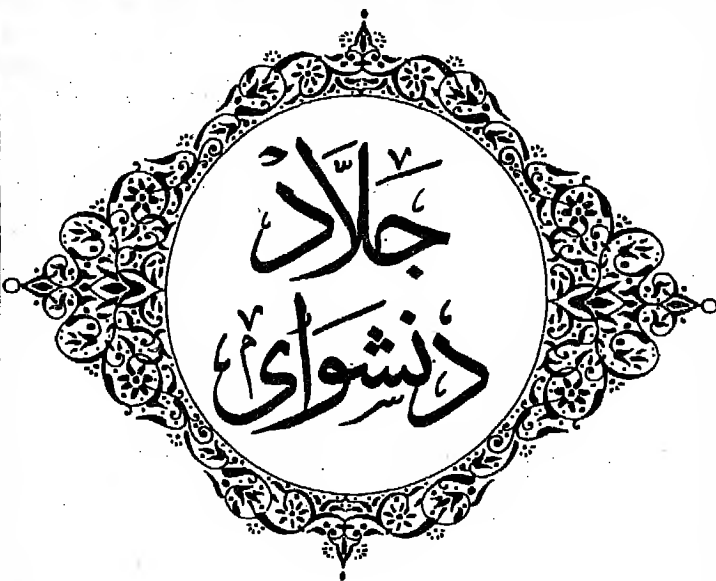 جلَّاد
دنشواى